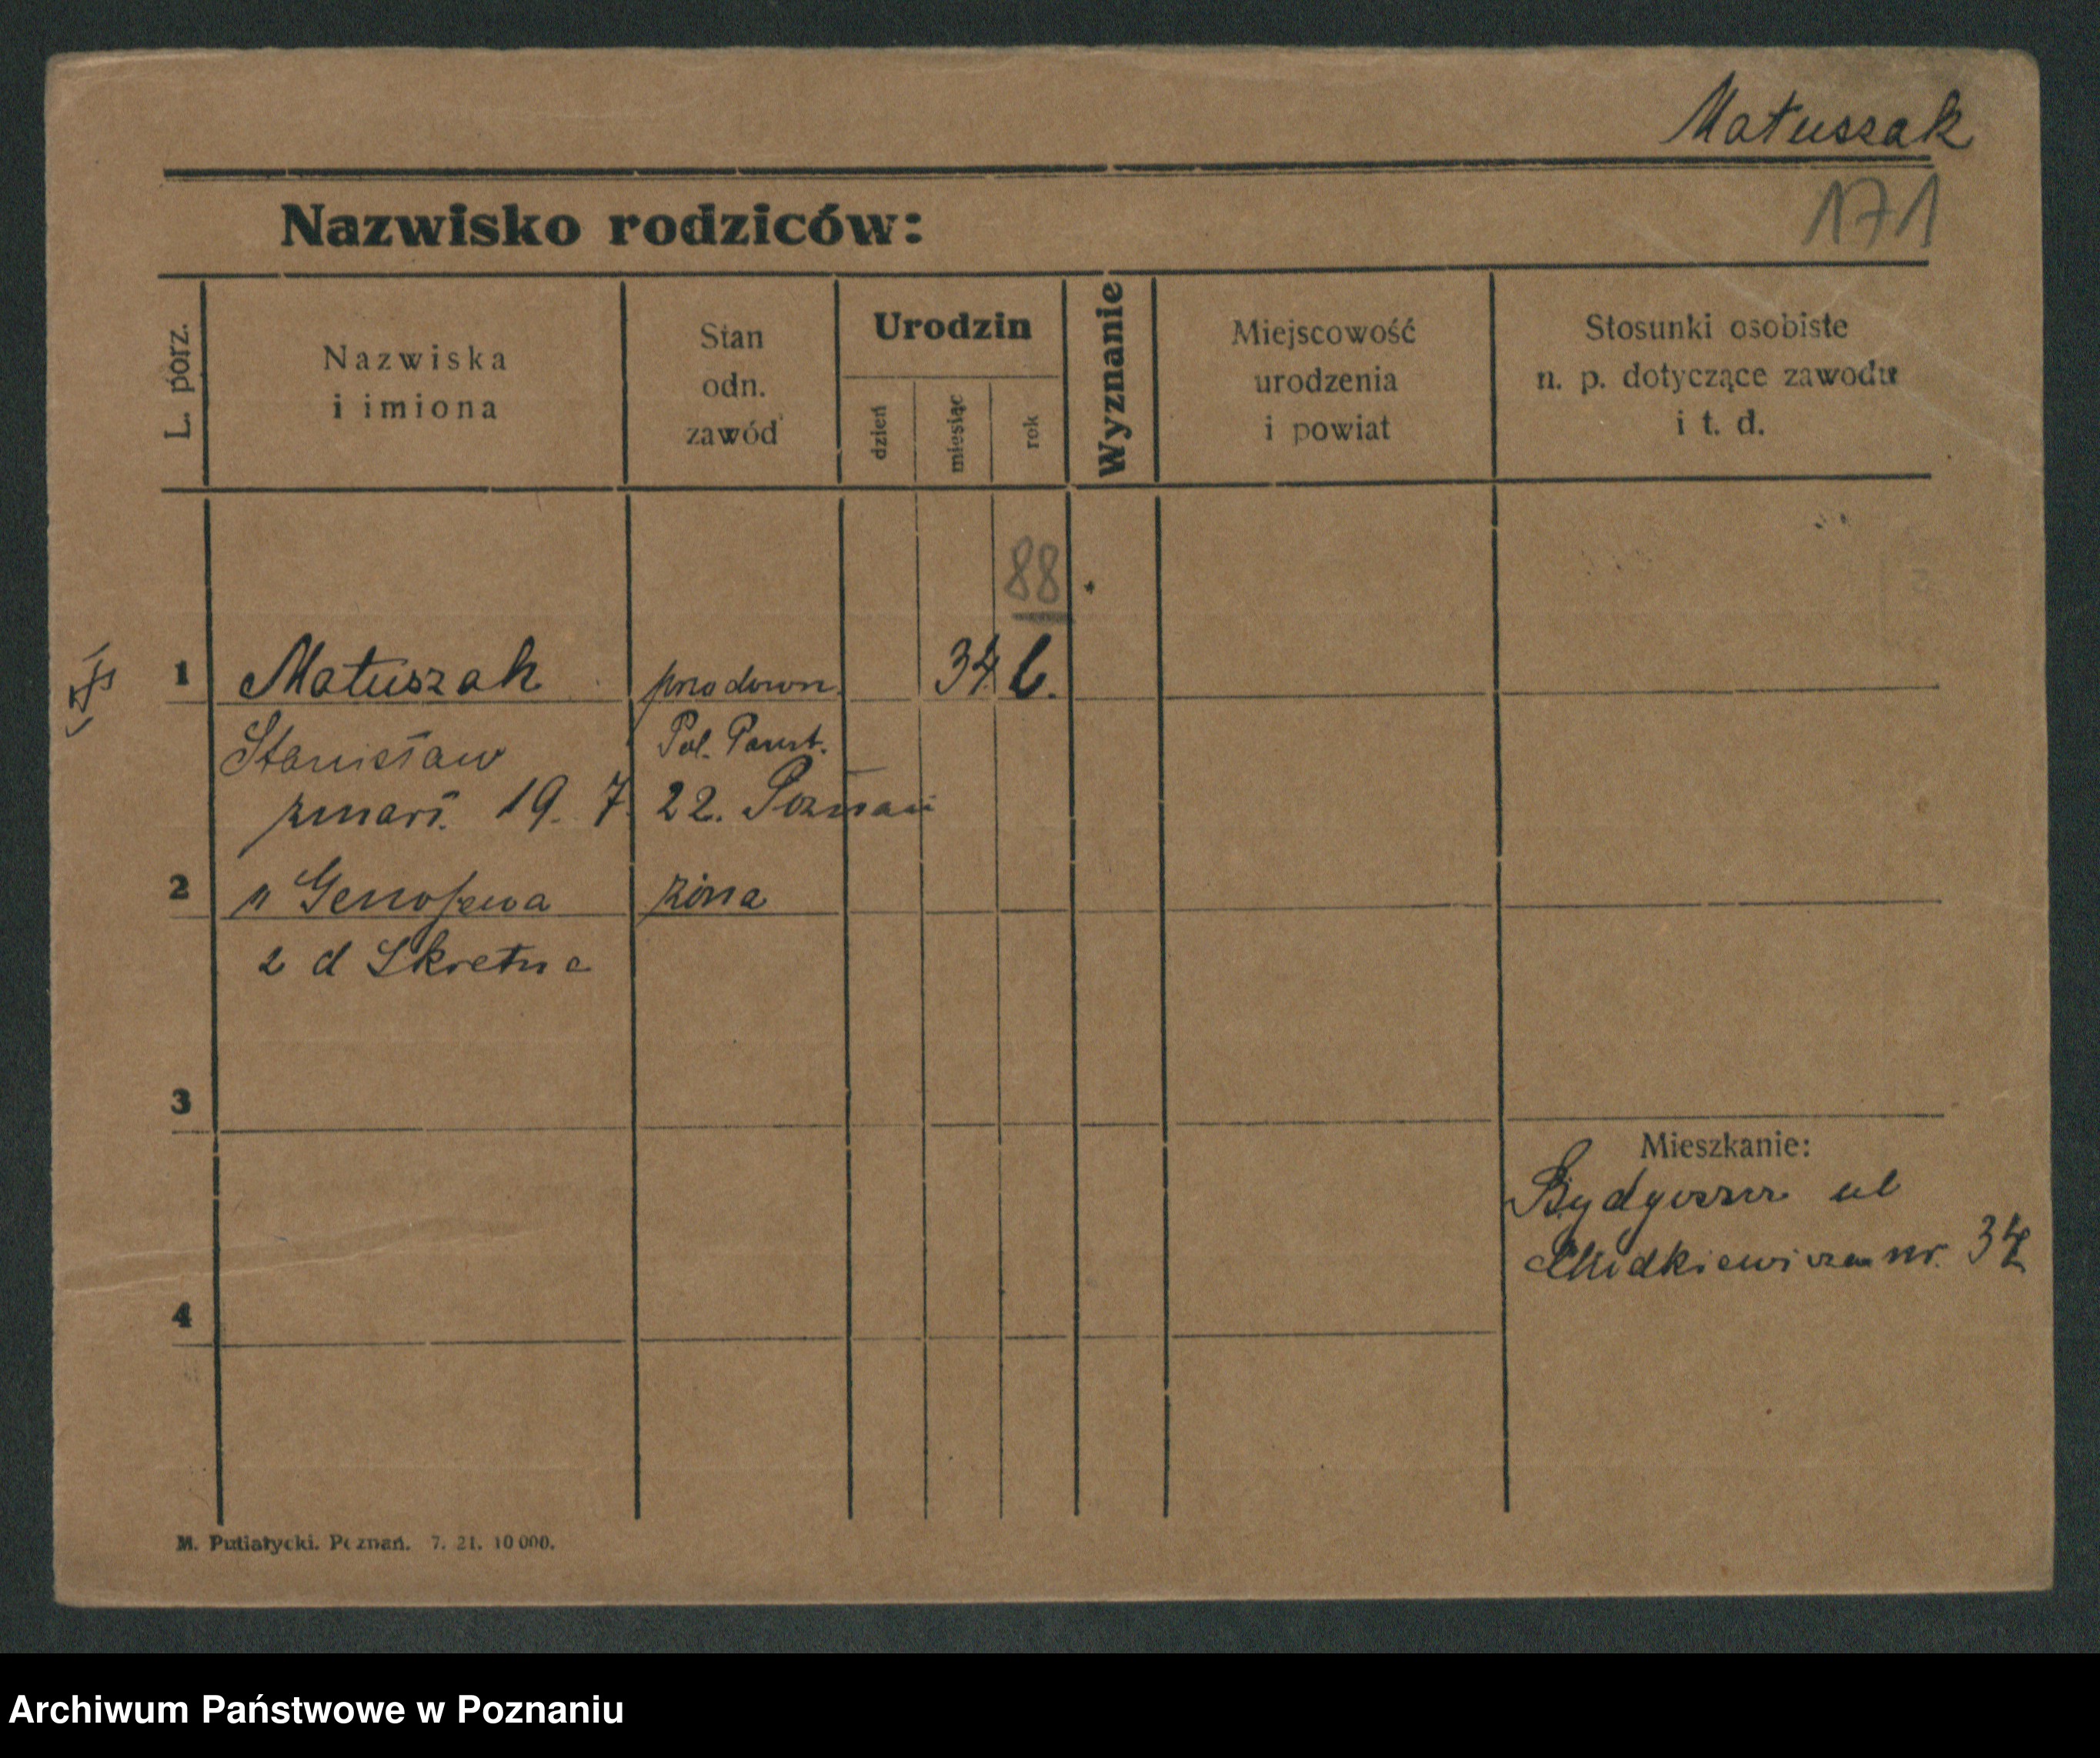 Matuszak
171
Nazwisko rodziców:
L. porz.
Nazwiska
i imiona
Stan
odn.
zawód
Urodzin
dzień
miesiąc
rok
Wyznanie
Miejscowość
urodzenia
i powiat
Stosunki osobiste
n. p. dotyczące zawodu
i t. d.
88
1 Matuszak przodown. 34 l.
Stanisław Pol. Państ.
zmarł. 19. 7. 22. Poznań
2 " Genofewa żona
z d Skretna
3
Mieszkanie:
Bydgoszcz ul
nr. 34
4
M. Putiatycki. Poznań. 7. 21. 10 000.
Archiwum Państwowe w Poznaniu